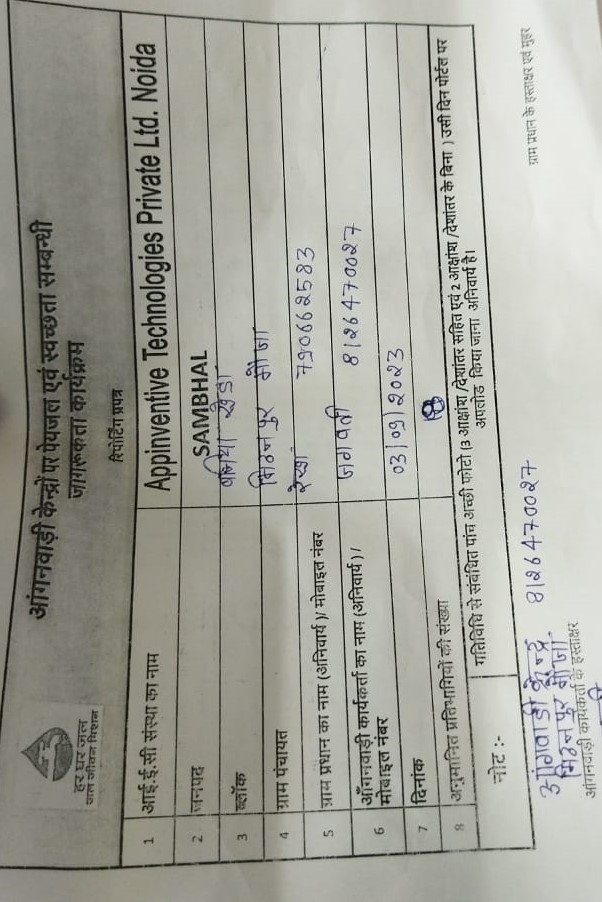 हर घर जल
जल जीवन मिशन
आंगनवाड़ी केन्द्रों पर पेयजल एवं स्वच्छता सम्बन्धी
जागरूकता कार्यक्रम
रिपोर्टिंग प्रपत्र
1 आई.ई.सी संस्था का नाम Appinventive Technologies Private Ltd. Noida
2 जनपद SAMBHAL
3 ब्लॉक बनिया खेडा
4 ग्राम पंचायत मिठनपुर मौजा
5 ग्राम प्रधान का नाम (अनिवार्य )/ मोबाइल नंबर रेखा 790662583
6 आँगनवाड़ी कार्यकर्ता का नाम (अनिवार्य )/
मोबाइल नंबर जगवती 8126470027
7 दिनांक 03/09/2023
8 अनुमानित प्रतिभागियों की संख्या
नोट :- गतिविधि से संबंधित पांच अच्छी फोटो (3 आक्षांश /देशांतर सहित एवं 2 आक्षांश /देशांतर के बिना ) उसी दिन पोर्टल पर
अपलोड किया जाना अनिवार्य है।
आंगवाडी केन्द्र 8126470027
मिठनपुर मौजा
आंगनवाड़ी कार्यकर्ता के हस्ताक्षर
ग्राम प्रधान के हस्ताक्षर एवं मुहर